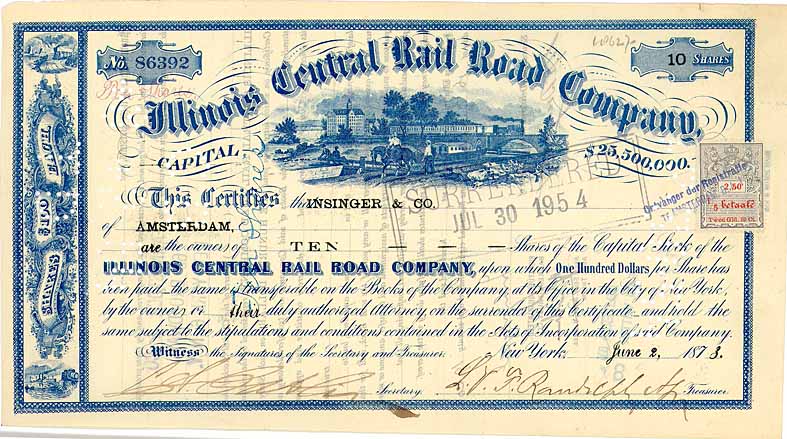 No. 86392
10 SHARES
Illinois Central Rail Road Company,
CAPITAL, $25,500,000.
SURRENDERED
JUL 30 1954
Ontvanger der Registratie
AMSTERDAM
2,50
betaald
This Certifies that INSINGER & CO.
of AMSTERDAM,
are the owners of TEN Shares of the Capital Stock of the
ILLINOIS CENTRAL RAIL ROAD COMPANY, upon which One Hundred Dollars per Share has
been paid the same is transferable on the Books of the Company at its Office in the City of New York,
by the owners or their duly authorized Attorney, on the surrender of this Certificate and hold the
same subject to the stipulations and conditions contained in the Acts of Incorporation of said Company.
Witness the Signatures of the Secretary and Treasurer. New York, June 2, 1873.
Secretary. L. V. F. Randolph Treasurer.